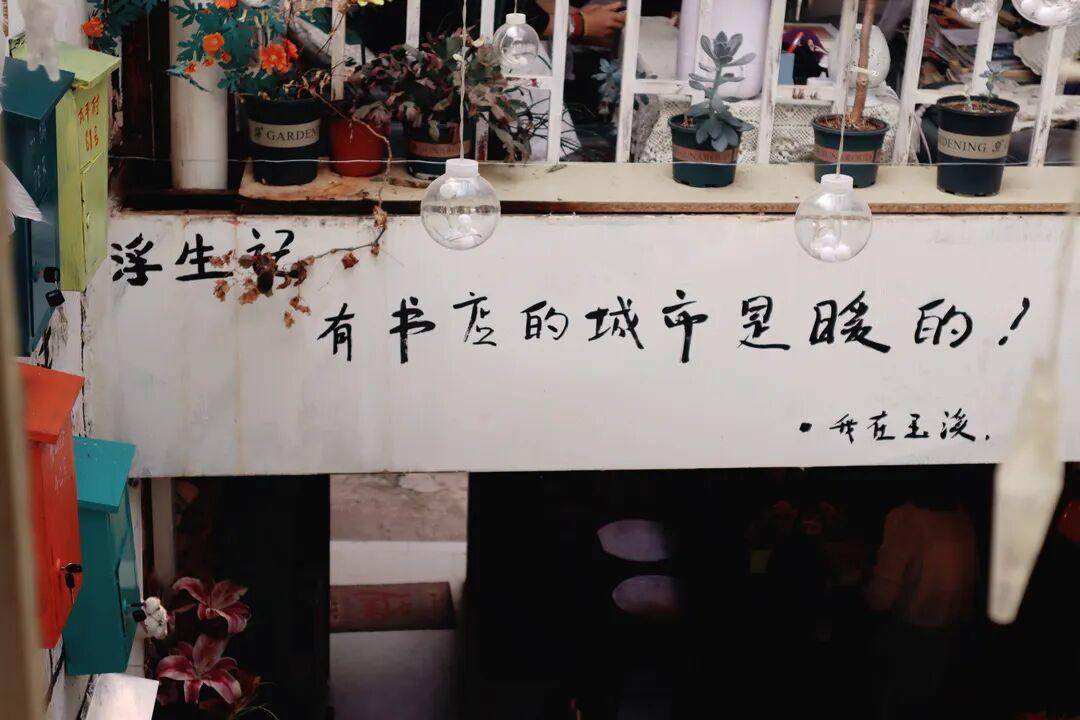 GARDENING
浮生记
有书店的城市是暖的!
·我在玉溪.